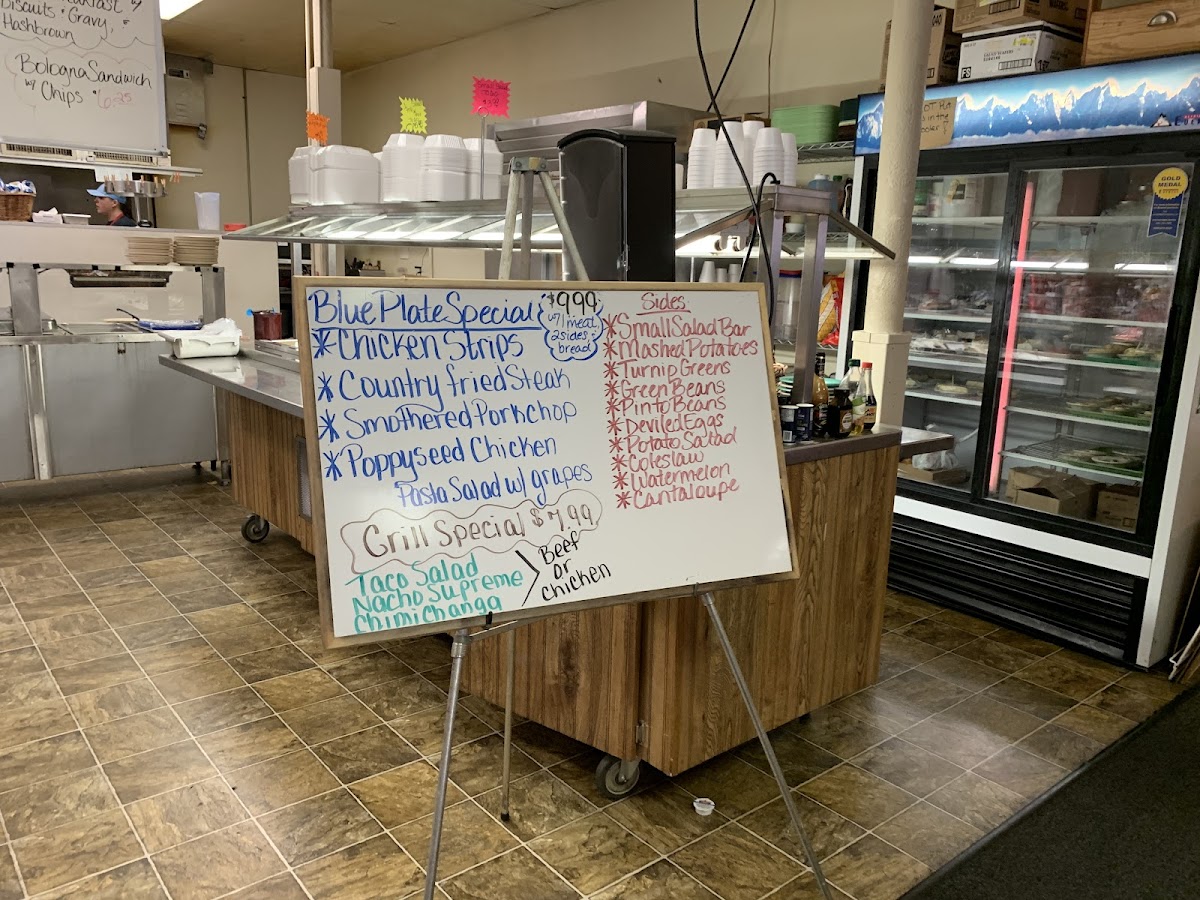 Biscuits & Gravy,
Hashbrown
Bologna Sandwich
w/ Chips $6.25
Blue Plate Special
$9.99
w/ 1 meat,
2 sides,
bread
*Chicken Strips
*Country fried Steak
*Smothered Porkchop
*Poppyseed Chicken
Pasta Salad w/ grapes
Grill Special $7.99
Taco Salad
Nacho Supreme
Chimichanga
Beef
or
Chicken
Sides
*Small Salad Bar
*Mashed Potatoes
*Turnip Greens
*Green Beans
*Pinto Beans
*Deviled Eggs
*Potato Salad
*Coleslaw
*Watermelon
*Cantaloupe
GOLD
MEDAL